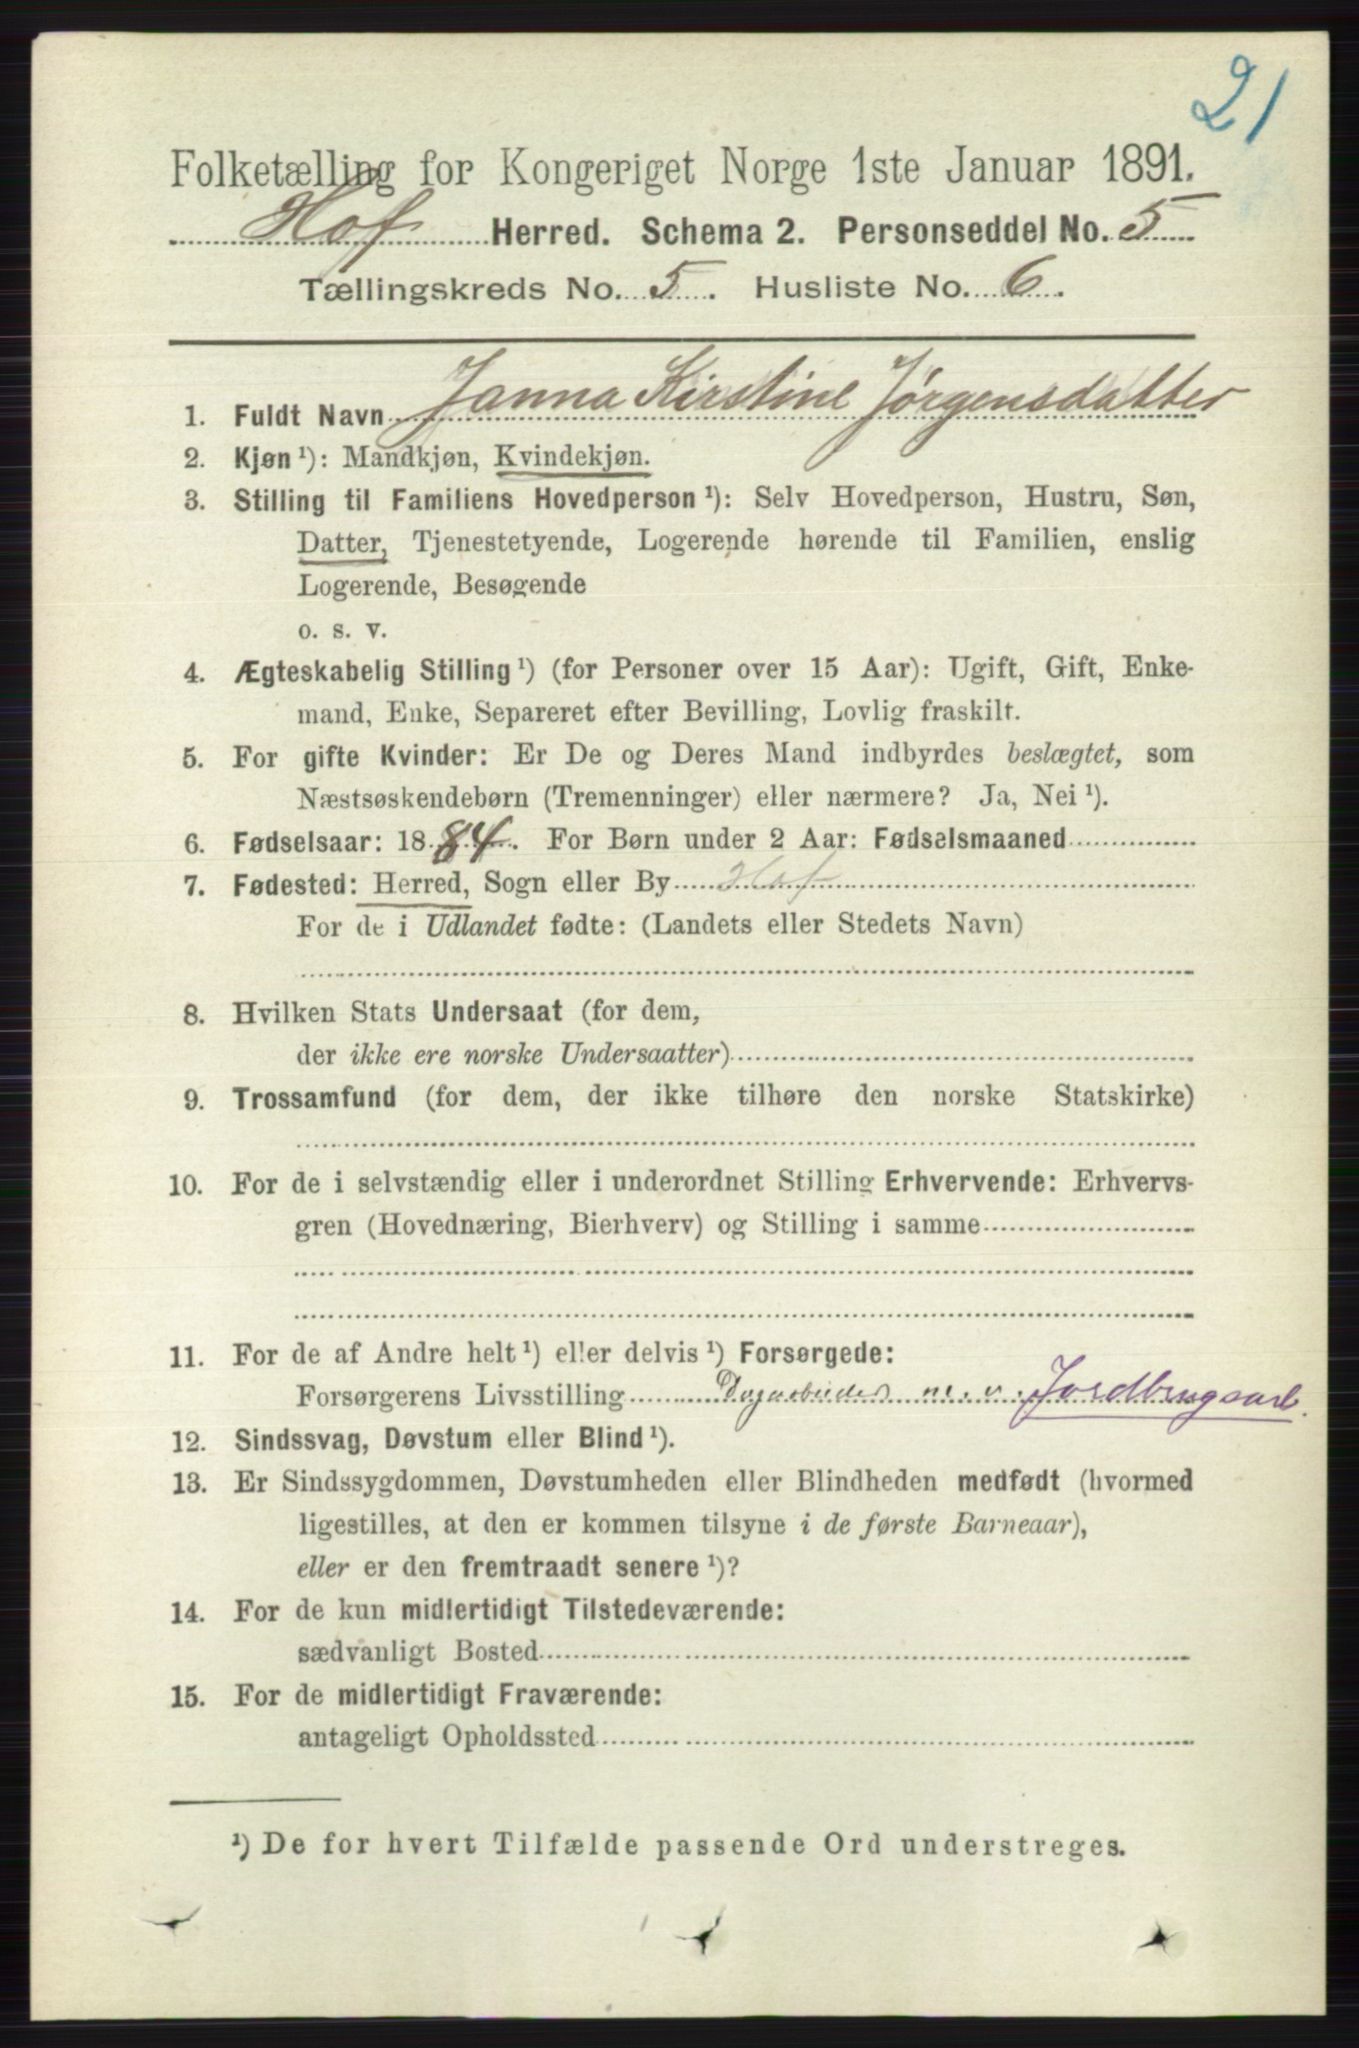 21
Folketælling for Kongeriget Norge 1ste Januar 1891.
Hof Herred. Schema 2. Personseddel No. 5
Tællingskreds No. 5. Husliste No. 6.
1. Fuldt Navn Janna Kirstine Jørgensdatter
2. Kjøn ¹): Mandkjøn, Kvindekjøn.
3. Stilling til Familiens Hovedperson ¹): Selv Hovedperson, Hustru, Søn,
Datter, Tjenestetyende, Logerende hørende til Familien, enslig
Logerende, Besøgende
o. s. v.
4. Ægteskabelig Stilling ¹) (for Personer over 15 Aar): Ugift, Gift, Enke-
mand, Enke, Separeret efter Bevilling, Lovlig fraskilt.
5. For gifte Kvinder: Er De og Deres Mand indbyrdes beslægtet, som
Næstsøskendebørn (Tremenninger) eller nærmere? Ja, Nei ¹).
6. Fødselsaar: 1884. For Børn under 2 Aar: Fødselsmaaned
7. Fødested: Herred, Sogn eller By Hof
For de i Udlandet fødte: (Landets eller Stedets Navn)
8. Hvilken Stats Undersaat (for dem,
der ikke ere norske Undersaatter)
9. Trossamfund (for dem, der ikke tilhøre den norske Statskirke)
10. For de i selvstændig eller i underordnet Stilling Erhvervende: Erhvervs-
gren (Hovednæring, Bierhverv) og Stilling i samme
11. For de af Andre helt ¹) eller delvis ¹) Forsørgede:
Forsørgerens Livsstilling Dagarbeider m. v. Jordbrugsarb.
12. Sindssvag, Døvstum eller Blind ¹).
13. Er Sindssygdommen, Døvstumheden eller Blindheden medfødt (hvormed
ligestilles, at den er kommen tilsyne i de første Barneaar),
eller er den fremtraadt senere ¹)?
14. For de kun midlertidigt Tilstedeværende:
sædvanligt Bosted
15. For de midlertidigt Fraværende:
antageligt Opholdssted
¹) De for hvert Tilfælde passende Ord understreges.